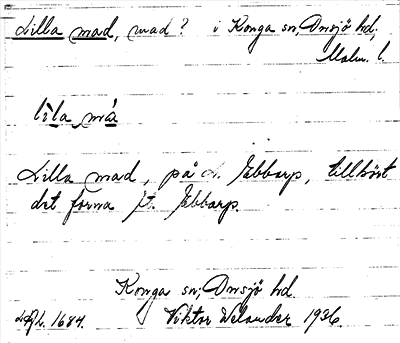 Lilla mad, mad? i Konga sn, Onsjö hd,
Malm. l.
lìla má
Lilla mad, på Ebbarp, tillhört
det forna Ebbarp.
Konga sn; Onsjö hd.
1684. Viktor Welander 1936.